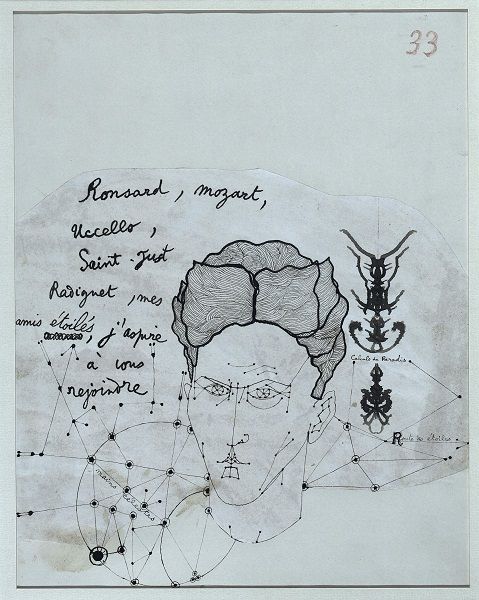 33
Ronsard, Mozart,
Uccello,
Saint-Just
Radiguet, mes
amis étoilés, j'aspire
à vous
rejoindre
Calculs du Paradis
Route des étoiles
mains célestes